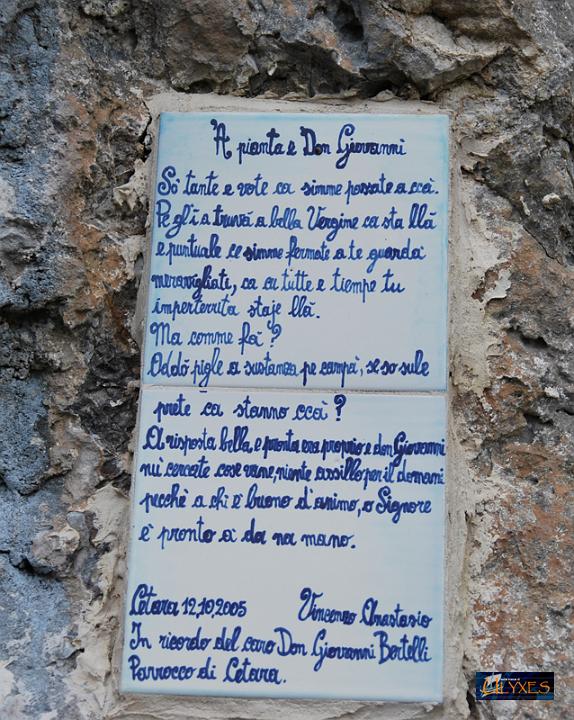 'A pianta e Don Giovanni
Só tante e vote ca simme passate a ccà.
Pe glì a truvà a bella Vergine ca sta llà
e puntuale ce simme fermate a te guardà
meravigliati, ca a tutte e tiempe tu
imperterrita staje llà.
Ma comme fà?
Addó pigle a sustanza pe campà, se so sule
prete ca stanno ccà?
A risposta bella e pronta era proprio e don Giovanni
nu' cercate cose vane, niente assillo per il domani
pecchè a chi è buono d'animo, o Signore
è pronto a da na mano.
Cetara 12,10,2005 Vincenzo Anastasio
In ricordo del caro Don Giovanni Bertelli
Parroco di Cetara.
ULYXES